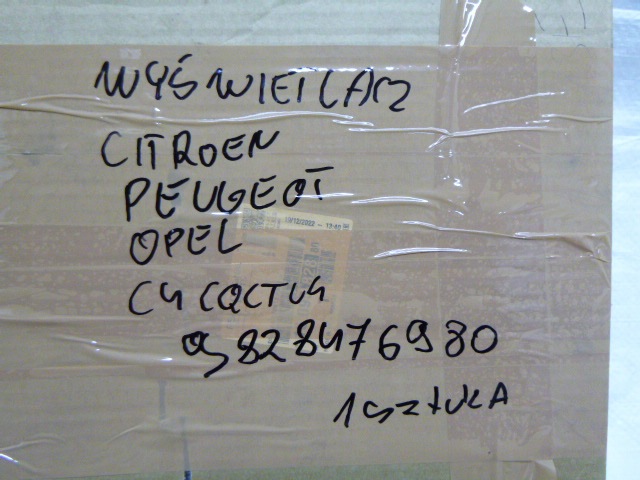 WYŚWIETLACZ
CITROEN
PEUGEOT
OPEL
19/12/2022 - 12:40
C4 CACTUS
9828476980
1 SZTUKA